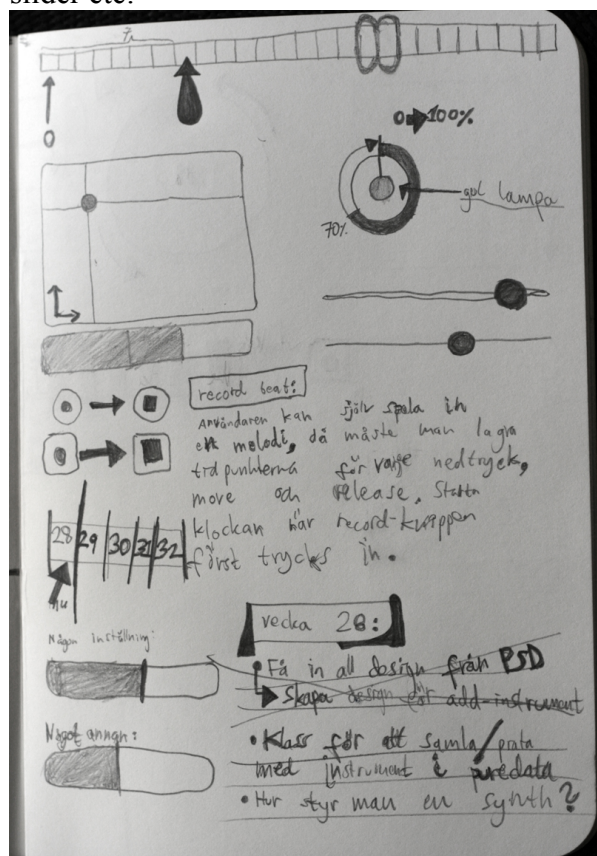 slider etc.
0
0 100%
gul lampa
70%
record beat:
Användaren kan själv spela in
en melodi, då måste man lagra
tidpunkterna för varje nedtryck,
move och release, Starta
klockan när record-knappen
först trycks in.
28 29 30 31 32
nu
Någon inställning:
Något annan:
vecka 28:
• Få in all design från PSD
Skapa design för add-instrument
• Klass för att samla/prata
med instrument i puredata
• Hur styr man en synth?